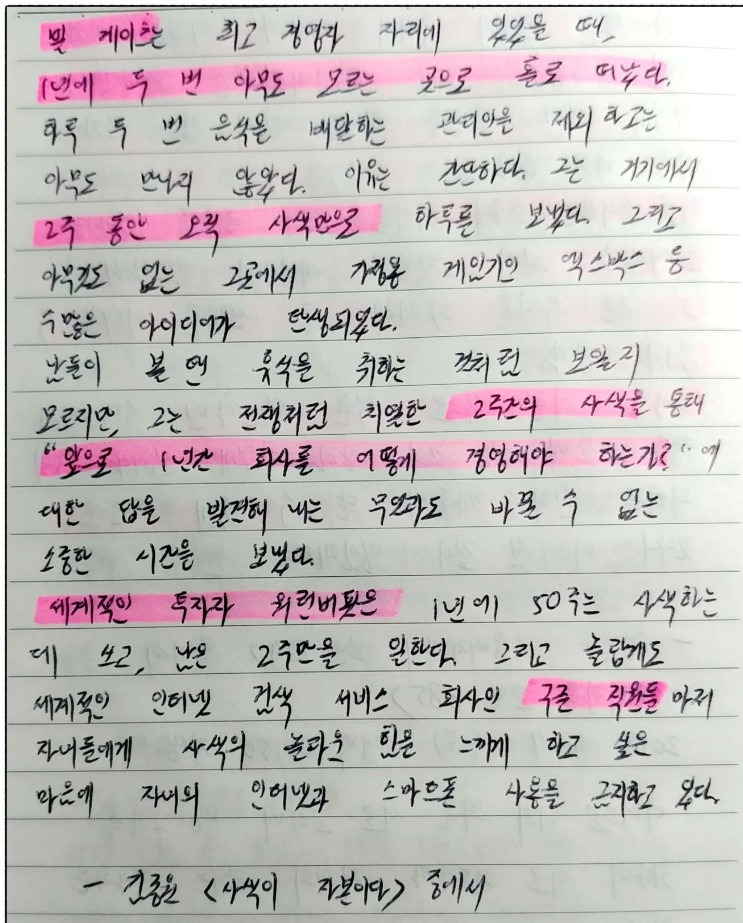 빌 게이츠는 최고 경영자 자리에 있었을 때,
1년에 두 번 아무도 모르는 곳으로 홀로 떠났다.
하루 두 번 음식을 배달하는 관리인을 제외 하고는
아무도 만나지 않았다. 이유는 간단하다. 그는 거기에서
2주 동안 오직 사색만으로 하루를 보냈다. 그리고
아무것도 없는 그곳에서 가정용 게임기인 엑스박스 등
수많은 아이디어가 탄생되었다.
남들이 볼 땐 휴식을 취하는 것처럼 보일지
모르지만, 그는 전쟁처럼 치열한 2주간의 사색을 통해
"앞으로 1년간 회사를 어떻게 경영해야 하는가?"에
대한 답을 발견해 내는 무엇과도 바꿀 수 없는
소중한 시간을 보냈다.
세계적인 투자자 워런버핏은 1년에 50주는 사색하는
데 쓰고, 남은 2주만을 일한다. 그리고 놀랍게도
세계적인 인터넷 검색 서비스 회사인 구글 직원들 마저
자녀들에게 사색의 놀라운 힘을 느끼게 하고 싶은
마음에 자녀의 인터넷과 스마트폰 사용을 금지하고 있다.
- 김종원 <사색이 자본이다> 중에서